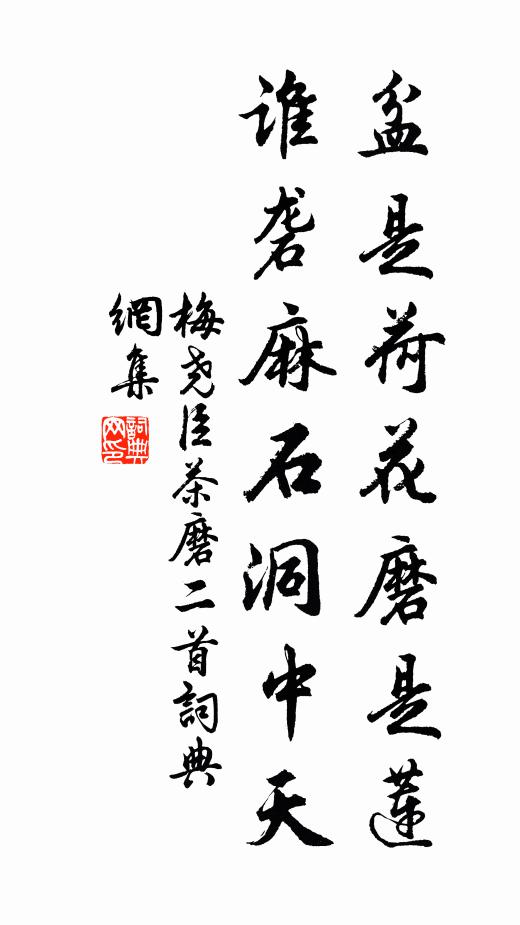 盆是荷花磨是蓮
谁砻麻石洞中天
梅尧臣茶磨二首詞典
網集
詞典
网印